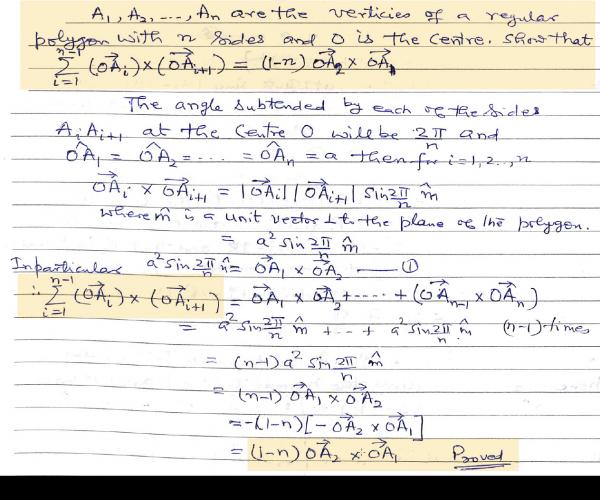 A₁, A₂, ..., An are the verticies of a regular
polygon with n sides and O is the centre. Show that
∑_{i=1}^{n-1} (OA⃗i) × (OA⃗i+1) = (1-n) OA⃗₂ × OA⃗₁
The angle subtended by each of the sides
AiAi+1 at the Centre O will be 2π/n and
OÂ₁ = OÂ₂ = ..... = OÂn = a then for i=1,2..,n
OA⃗i × OA⃗i+1 = |OA⃗i| |OA⃗i+1| sin 2π/n m̂
where m̂ is a unit vector ⊥ to the plane of the polygon.
= a² sin 2π/n m̂
In particular a² sin 2π/n n̂ = OA⃗₁ × OA⃗₂ —— ①
∴ ∑_{i=1}^{n-1} (OA⃗i) × (OA⃗i+1) = OA⃗₁ × OA⃗₂ + ..... + (OA⃗n-1 × OA⃗n)
= a² sin 2π/n m̂ + ... + a² sin 2π/n m̂ (n-1) times
= (n-1) a² sin 2π/n m̂
= (n-1) OA⃗₁ × OA⃗₂
= -(1-n) [-OA⃗₂ × OA⃗₁]
= (1-n) OA⃗₂ × OA⃗₁ Proved